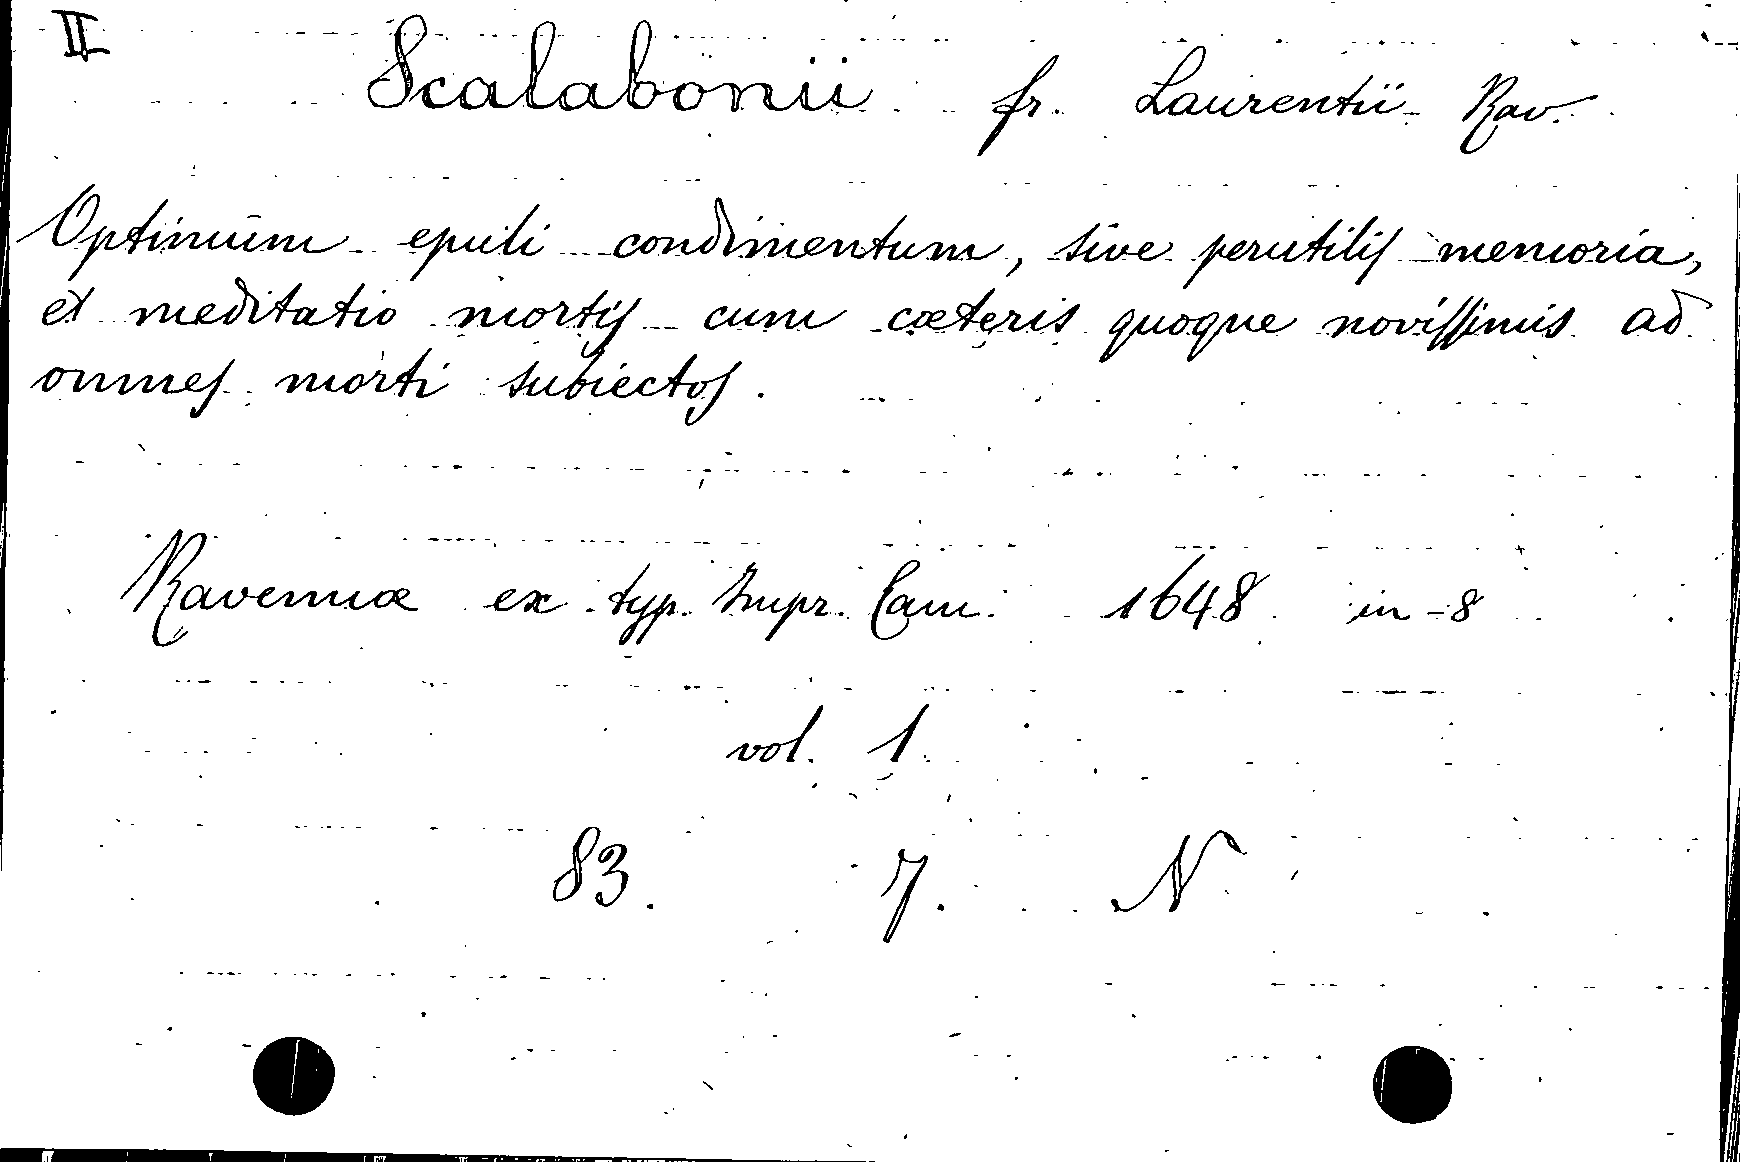 II
Scalabonii fr. Laurentii Rav.
Optimum epuli condimentum, sive perutilis memoria,
et meditatio mortis cum cæteris quoque novissimis ad
omnes morti subiectos.
Ravennæ ex typ. Impr. Cam. 1648 in-8
vol. 1.
83. 7. N